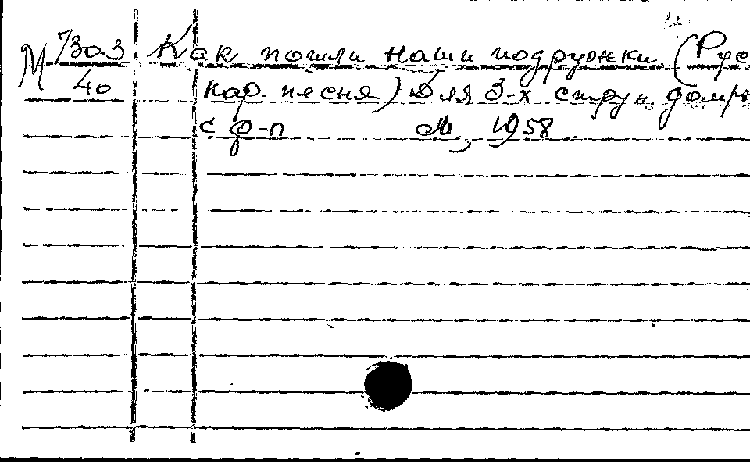 М 7303 Как пошли наши подружки (Рус
40 нар. песня) Для 3-х струн. домры
с ф-п М., 1958